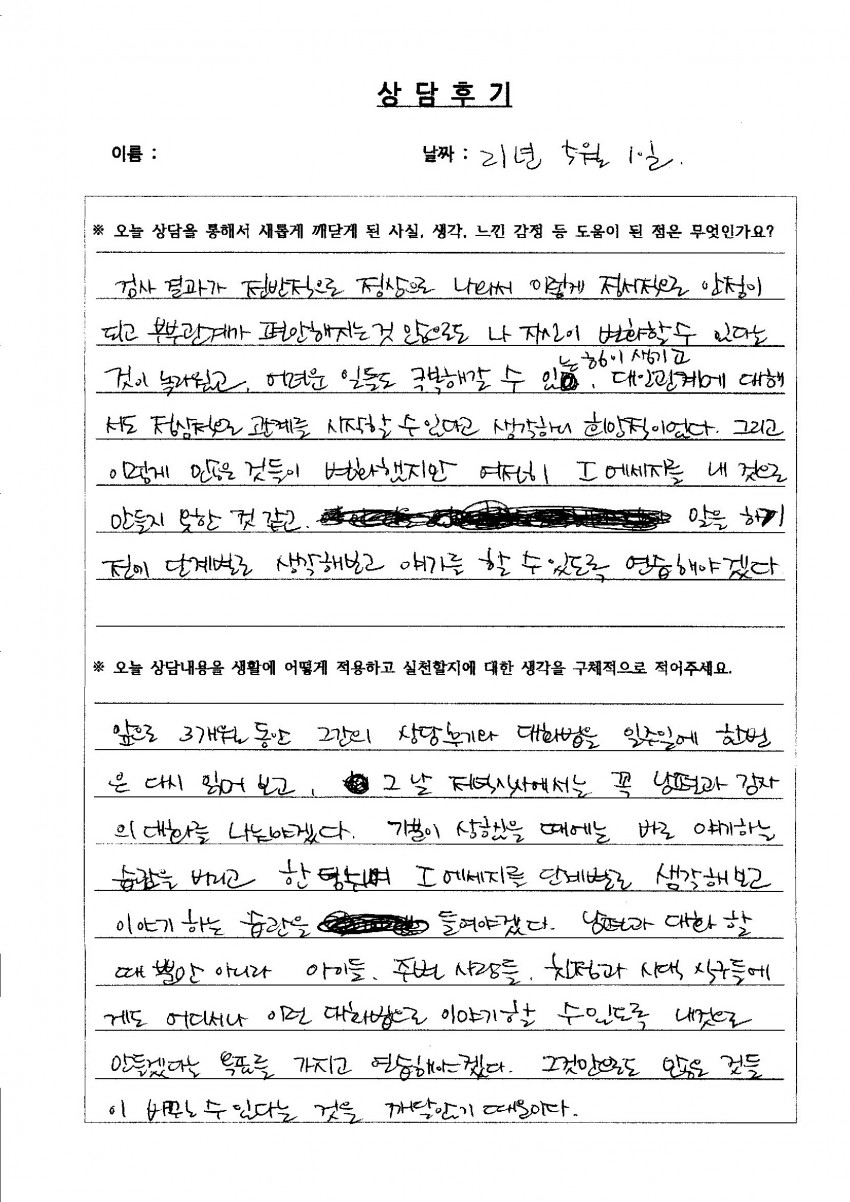 상 담 후 기
이름 : 날짜 : 21년 5월 1일.
※ 오늘 상담을 통해서 새롭게 깨닫게 된 사실, 생각, 느낀 감정 등 도움이 된 점은 무엇인가요?
검사 결과가 전반적으로 정상으로 나와서 이렇게 정서적으로 안정이
되고 부부관계가 편안해지는것 만으로도 나 자신이 변화할수 있다는
는 힘이 생기고
것이 놀라웠고, 어려운 일들도 극복해갈 수 있, 대인관계에 대해
서도 진심적으로 관계를 시작할 수 있다고 생각하니 희망적이었다. 그리고
이렇게 많은 것들이 변화했지만 여전히 I 메세지를 내 것으로
만들지 못한 것 같고. 말을 하기
전에 단계별로 생각해보고 얘기를 할 수 있도록 연습해야겠다
※ 오늘 상담내용을 생활에 어떻게 적용하고 실천할지에 대한 생각을 구체적으로 적어주세요.
앞으로 3개월 동안 그간의 상담후기와 대화법을 일주일에 한번
은 다시 읽어 보고, 그 날 저녁식사에서는 꼭 남편과 감사
의 대화를 나눠야겠다. 기분이 상했을 때에는 바로 얘기하는
습관을 버리고 한 I 메세지를 단계별로 생각해보고
이야기 하는 습관을 들여야겠다. 남편과 대화 할
때 뿐만 아니라 아이들, 주변 사람들, 친정과 시댁 식구들에
게도 어디서나 이런 대화법으로 이야기할 수 있도록 내것으로
만들겠다는 목표를 가지고 연습해야겠다. 그것만으로도 많은 것들
이 바뀌는 수 있다는 것을 깨달았기 때문이다.